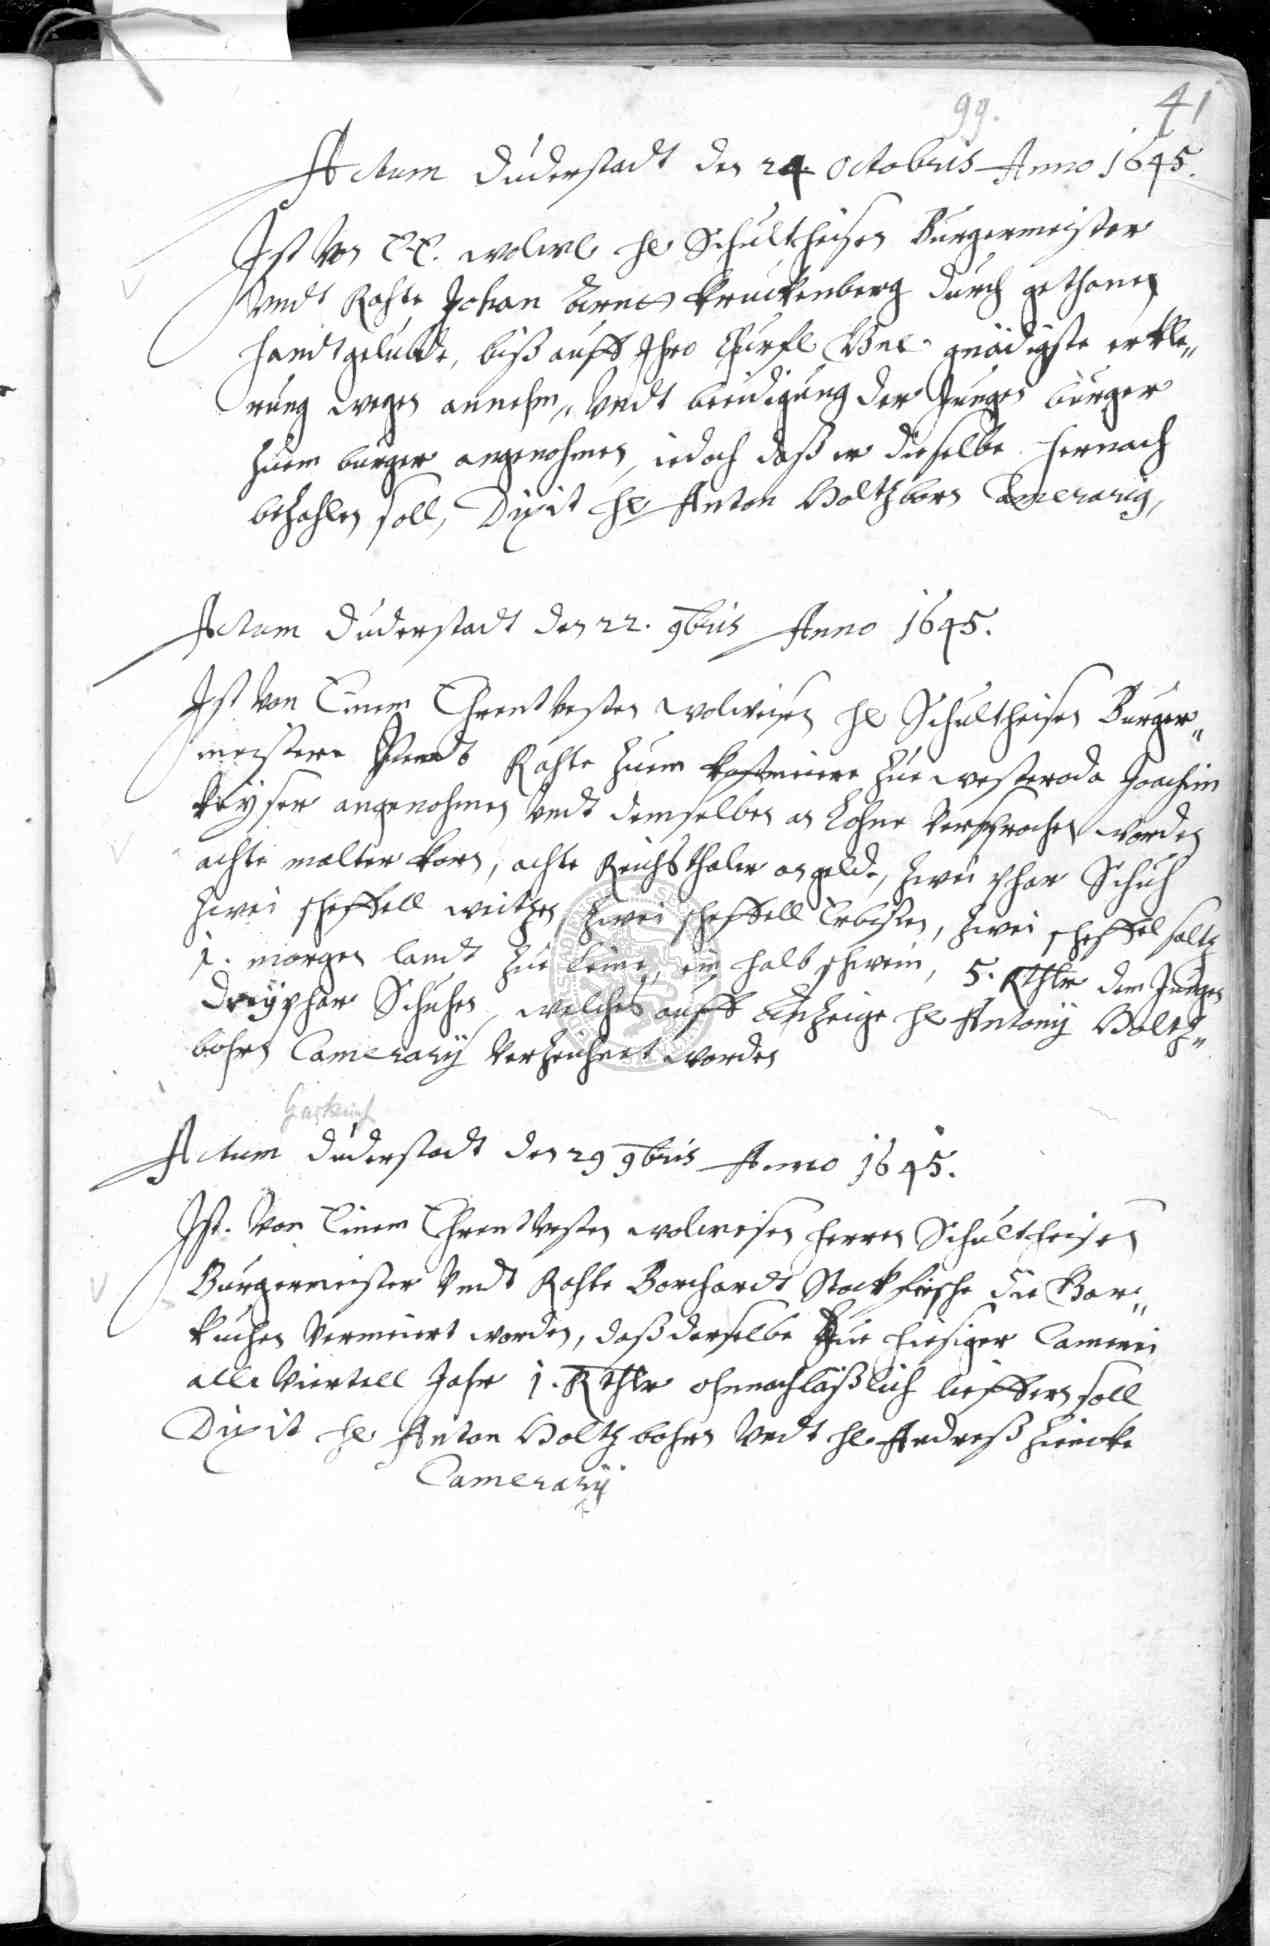 99. 41
Actum Duderstadt den 24. Octobris Anno 1645.
Ist von E. E. wolwl hl Schultheisen Burgermeister
Vndt Rahte Johan Krückenberg durch gethanes
handtgelübde, biß auff Ihro Churfl Gne gnädigste erkle„
rung wegen annehm„ Vndt beeidigung der Jungen bürger
Zuem burger angenohmen, iedoch daß er dieselbe hernach
bezahlen soll, Dixit hl Anton Holtzborn Camerarig,
Actum Duderstadt den 22. 9bris Anno 1645.
Ist von Einem Ehrentvesten wolweisen hl Schultheisen Burger„
meistern Vndt Rahte Zuem hoffmeiere Zue westeroda Joachim
Keyser angenohmen Vndt demselben an Lohne Versprochen worden
achte malter korn, achte Reichsthaler an gelde, Zwei phar Schuh
Zwei scheffell weitzen Zwei scheffell Erbißen, Zwei scheffel saltz
1. morgen landt Zue Leine, ein halb schwein, 5. Rthlr dem Jungen
Dreyphar Schuhen, welches auff Anzeige hl Antonij Holtz„
bohrn Camerarij Verzeichnet worden
Garküch
Actum Duderstadt den 29 9bris Anno 1645.
Ist von Einem Ehrentvesten wolweisen herren Schultheisen
Bürgermeister Vndt Rahte Borchardt Stockfische die Gar„
kuchen Vermeiert worden, daß derselbe Zue hiesiger Camerei
alle Viertell Jahr 1. Rthlr ohnnachläßlich lieffern soll
Dixit hl Anton Holtzbohrn Vndt hl Andreß Hincke
Camerarij